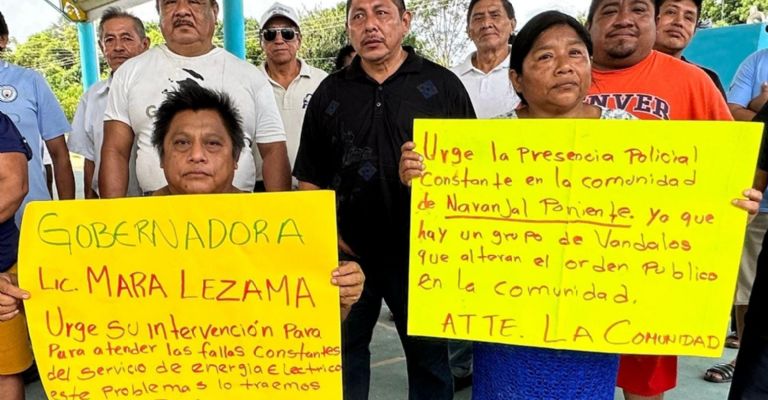 GOBERNADORA
Lic. MARA LEZAMA
Urge Su intervención Para
Para atender las fallas Constantes
del servicio de energia Electrica
este Problemas lo traemos
Urge la Presencia Policial
Constante en la comunidad
de Naranjal Poniente. Ya que
hay un grupo de Vandalos
que alteran el orden Publico
en la comunidad.
ATTE. LA COMUNIDAD
NVER